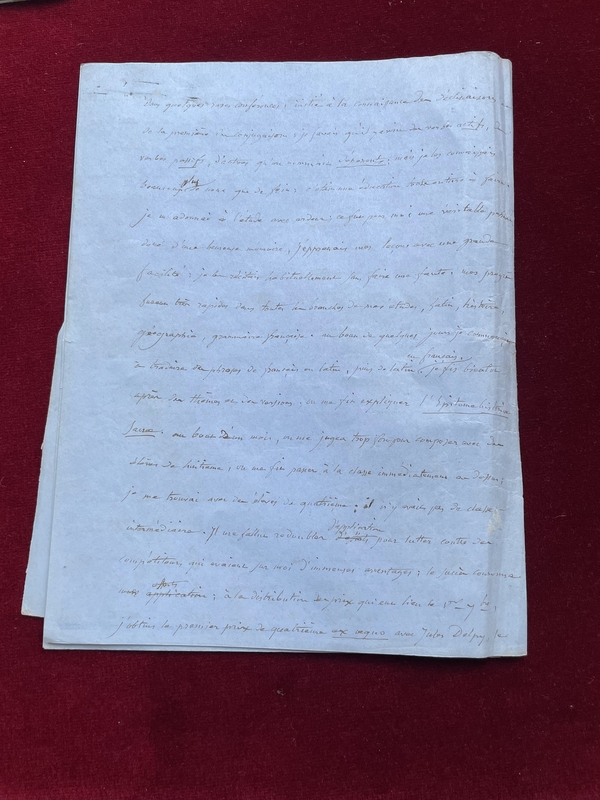 quelques mots confus ; initié à la connaissance des déclinaisons,
de la première conjugaison ; je savais qu'il y avait des verbes actifs,
verbes passifs, d'autres qu'on nommait
beaucoup plus que de
je m'adonnai à l'étude avec ardeur ; une véritable
doué d'une heureuse mémoire, j'apprenais mes leçons avec une grande
facilité ; je les récitais habituellement sans faire une faute ; mes progrès
furent très rapides dans toutes les branches de mes études, latin, histoire,
géographie, grammaire française. au bout de quelques jours je commençai
en français.
à traduire des phrases de français en latin, puis de latin je fis bientôt
après des thèmes et des versions, on me fit expliquer l'Epitome historiæ
Sacræ. au bout d'un mois, on me jugea trop fort pour composer avec des
élèves de huitième ; on me fit passer à la classe immédiatement au dessus ;
je me trouvai avec des élèves de quatrième ; il n'y avait pas de classe
intermédiaire. Il me fallut redoubler
d'application
pour lutter contre des
compétiteurs qui avaient sur moi d'immenses avantages ; le succès couronna
efforts
mes application ; à la distribution des prix qui eut lieu le 1er 7bre,
j'obtins le premier prix de quatrième ex æquo avec Jules